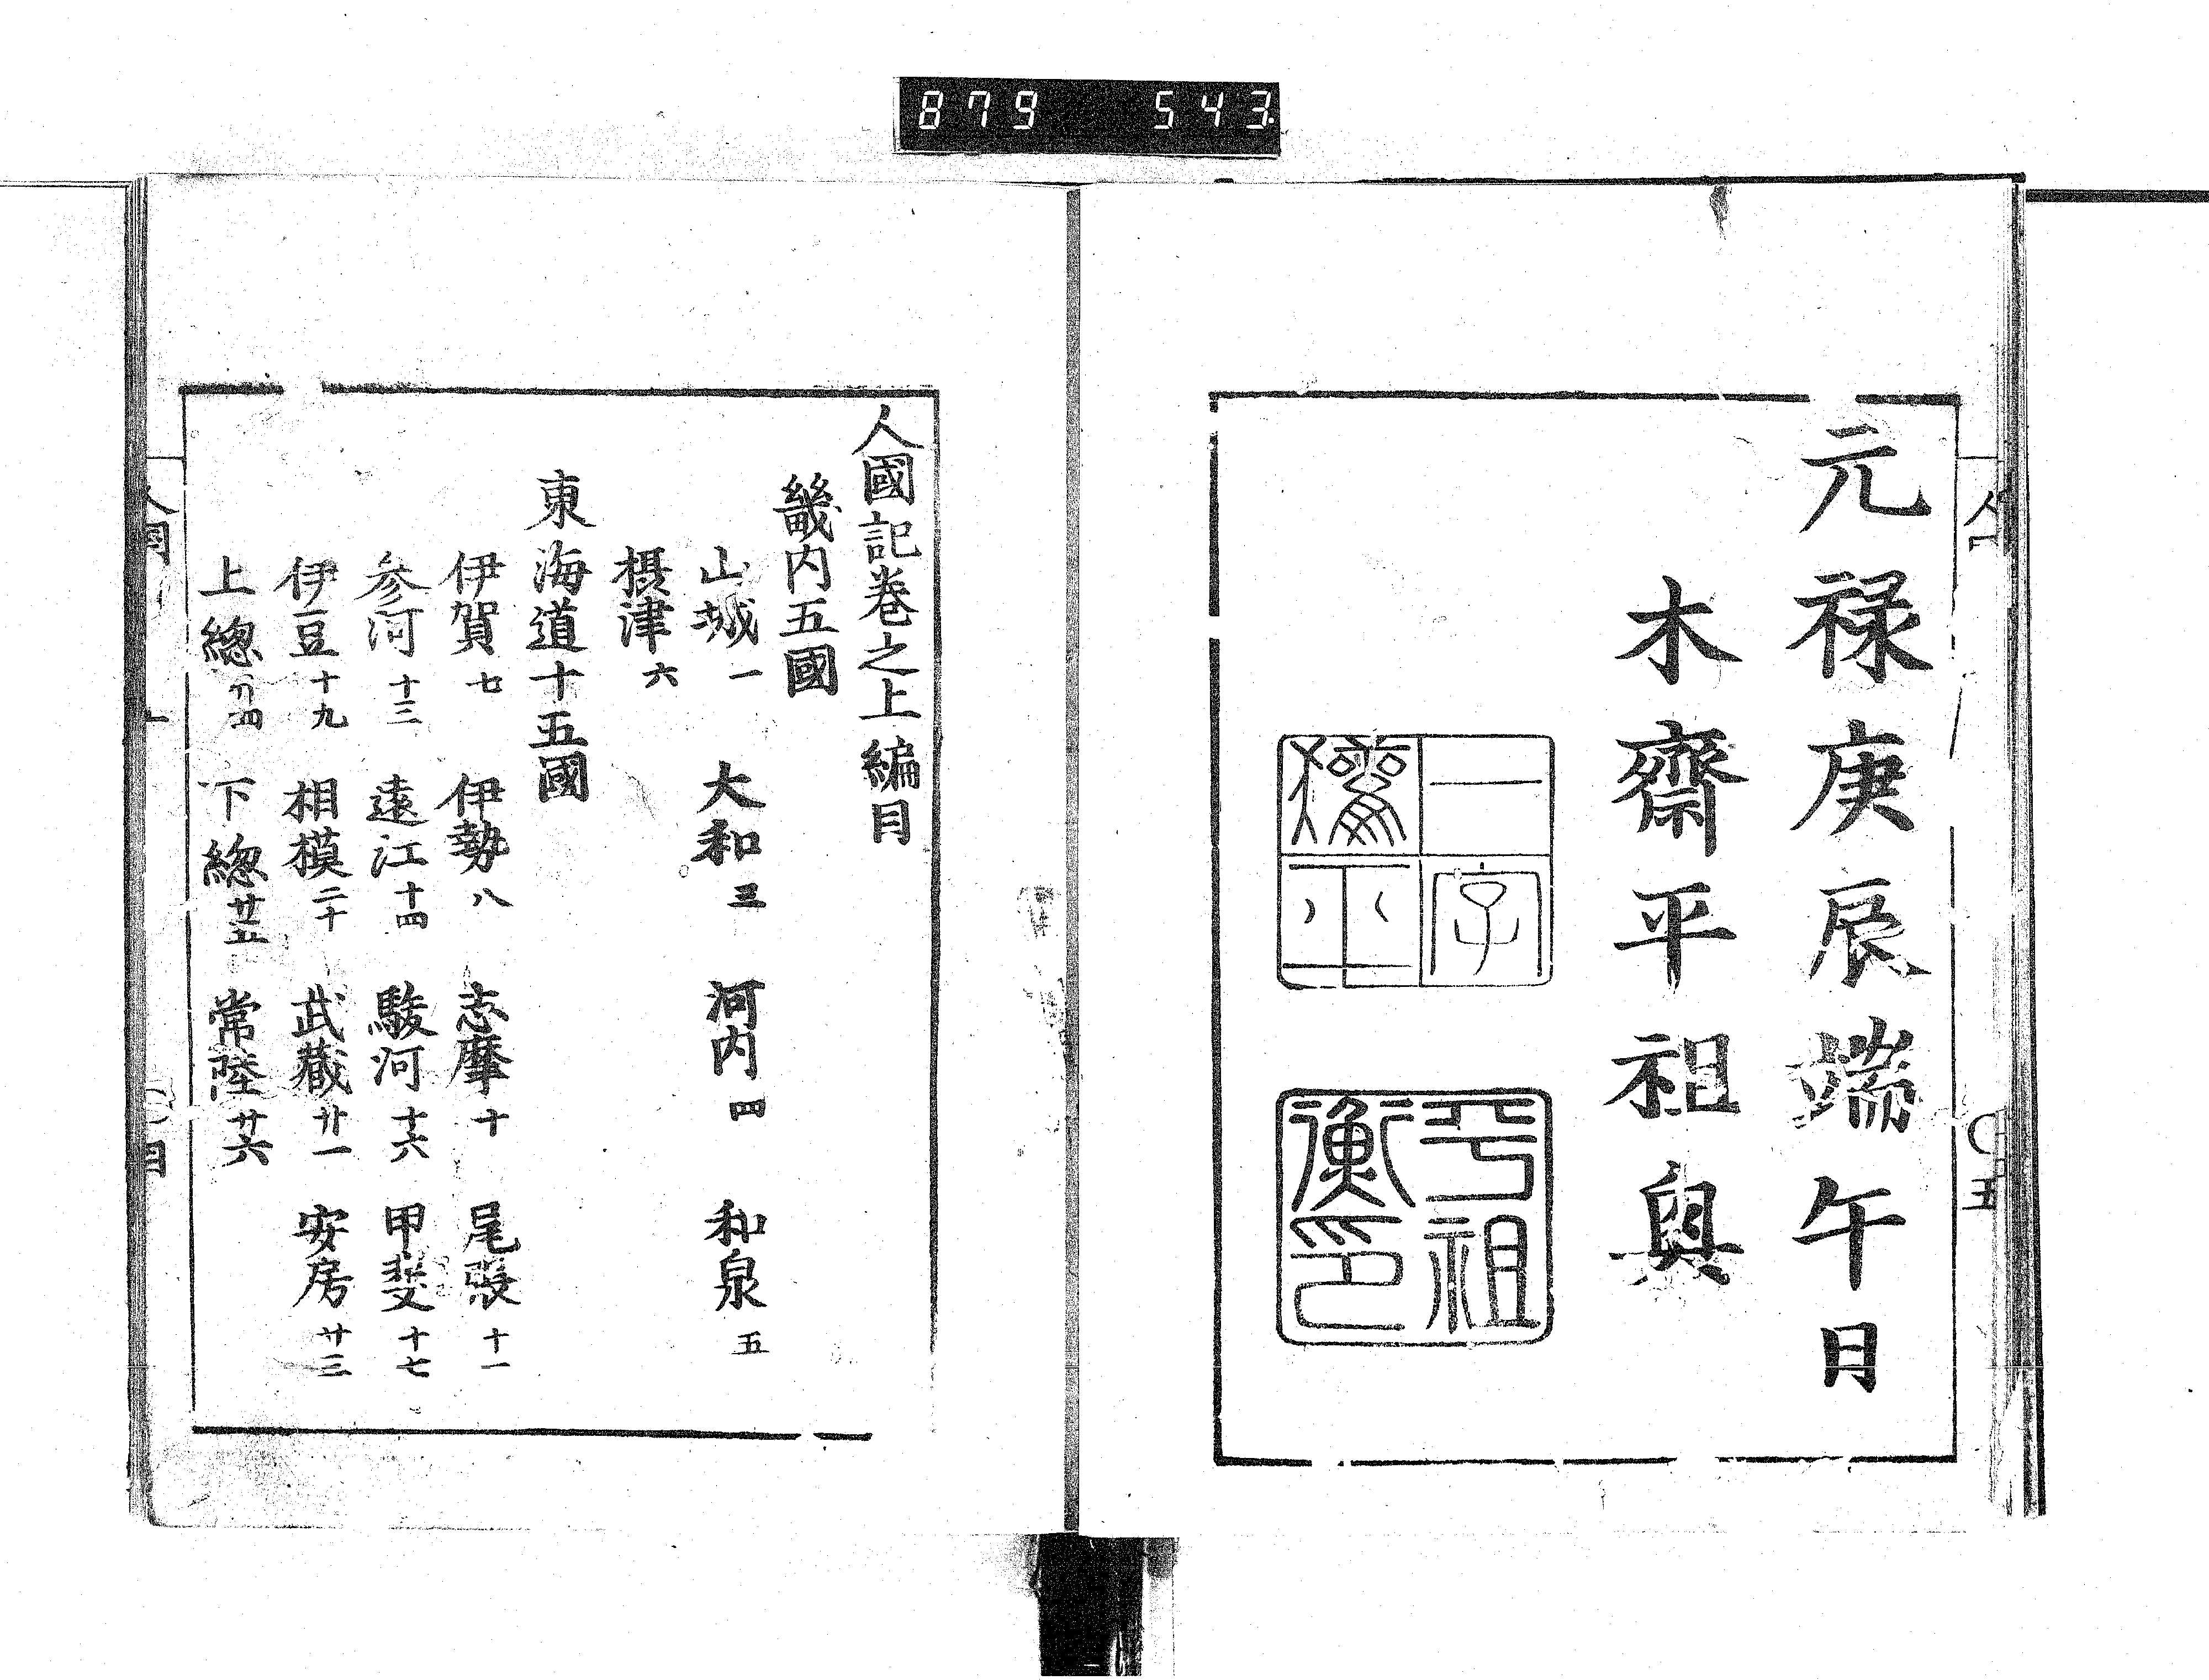 879 543
元禄庚辰端午日
木齋平祖與
一字
平
平祖
衡印
五
人國記卷之上編目
畿内五國
山城一 大和三 河内四 和泉五
摂津六
東海道十五國
伊賀七 伊勢八 志摩十 尾張十一
参河十三 遠江十四 駿河十六 甲斐十七
伊豆十九 相模二十 武藏廿一 安房廿三
上總廿四 下總廿五 常陸廿六